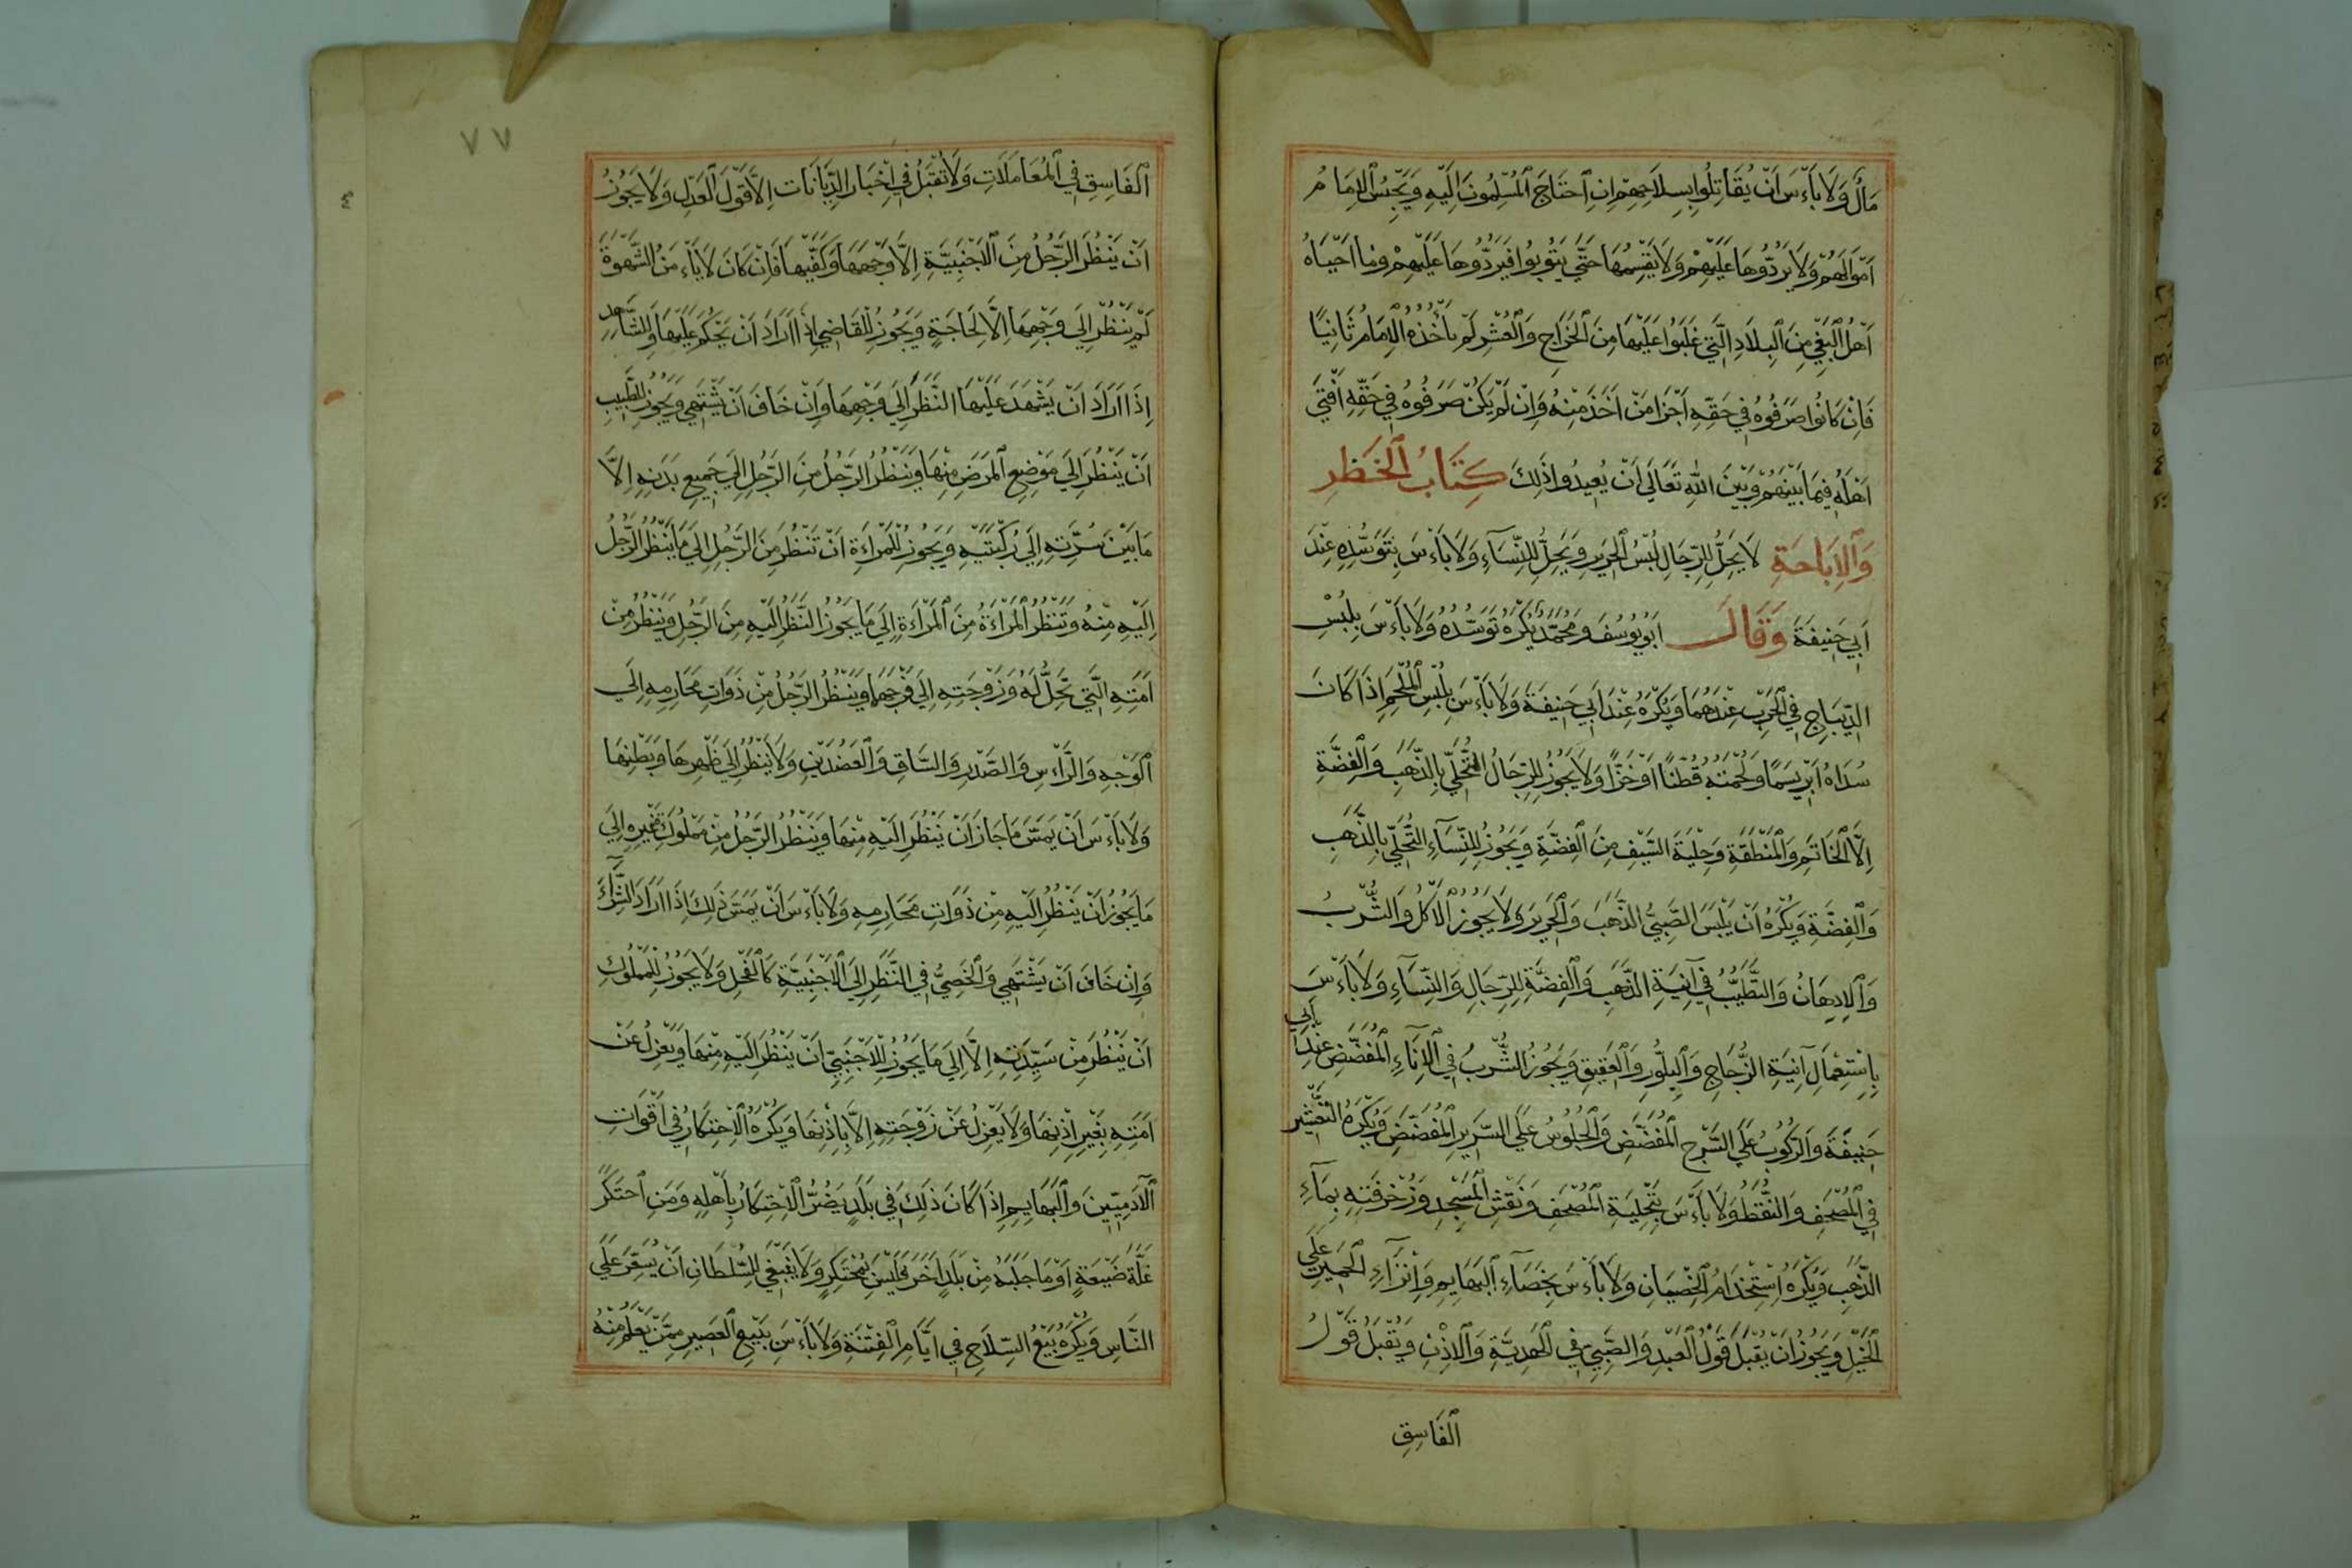 مَالٌ وَلَا بَأْسَ أَنْ يُقَاتِلُوا بِسِلَاحِهِمْ اِنِ اُحْتَاجَ الْمُسْلِمُونَ اِلَيْهِ وَيَحْبِسُ الْاِمَامُ
اَمْوَالَهُمْ وَلَا يَرُدُّوهَا عَلَيْهِمْ وَلَا يَقْسِمُهَا حَتَّى يَتُوبُوا فَيَرُدُّوهَا عَلَيْهِمْ وَمَا احْيَاهُ
اَهْلُ الْبَغْيِ مِنَ الْبِلَادِ الَّتِي غَلَبُوا عَلَيْهَا مِنَ الْخَرَاجِ وَالْعُشْرِ لَمْ يَأْخُذْهُ الْاِمَامُ ثَانِيًا
فَاِنْ كَانُوا صَرَفُوهُ فِي حَقِّهِ اَجْزَا مَنْ اَخَذَ مِنْهُ وَاِنْ لَمْ يَكُنْ صَرَفُوهُ فِي حَقِّهِ اُفْتِيَ
اَهْلُهُ فِيمَا بَيْنَهُمْ وَبَيْنَ اللهِ تَعَالَى اَنْ يُعِيدُوا ذَلِكَ كِتَابُ الْحَظْرِ
وَالْاِبَاحَةِ لَا يَحِلُّ لِلرِّجَالِ لُبْسُ الْحَرِيرِ وَيَحِلُّ لِلنِّسَآءِ وَلَا بَاءْسَ بِتَوَسُّدِهِ عِنْدَ
اَبِي حَنِيفَةَ وَقَالَ اَبُو يُوسُفَ وَمُحَمَّدٌ يُكْرَهُ تَوَسُّدُهُ وَلَا بَاءْسَ بِلُبْسِ
الدِّيبَاجِ فِي الْحَرْبِ عِنْدَهُمَا وَيُكْرَهُ عِنْدَ اَبِي حَنِيفَةَ وَلَا بَاءْسَ بِلُبْسِ الْمُلْحَمِ اِذَا كَانَ
سُدَاهُ اَبْرِيسَمًا وَلُحْمَتُهُ قُطْنًا اَوْ خَزًّا وَلَا يَجُوزُ لِلرِّجَالِ التَّحَلِّي بِالذَّهَبِ وَالْفِضَّةِ
اِلَّا الْخَاتَمِ وَالْمِنْطَقَةِ وَحِلْيَةَ السَّيْفِ مِنَ الْفِضَّةِ وَيَجُوزُ لِلنِّسَآءِ التَّحَلِّي بِالذَّهَبِ
وَالْفِضَّةِ وَيُكْرَهُ اَنْ يَلْبَسَ الصَّبِيُّ الذَّهَبَ وَالْحَرِيرَ وَلَا يَجُوزُ الْاَكْلُ وَالشُّرْبُ
وَالْاِدِهَانُ وَالتَّطَيُّبُ فِي آنِيَةِ الذَّهَبِ وَالْفِضَّةِ لِلرِّجَالِ وَالنِّسَآءِ وَلَا بَاءْسَ
بِاِسْتِعْمَالِ آنِيَةِ الزُّجَاجِ وَالْبِلَّوْرِ وَالْعَقِيقِ وَيَجُوزُ الشُّرْبُ فِي الْاِنَاءِ الْمُفَضَّضِ عِنْدَ اَبِي
حَنِيفَةَ وَالرُّكُوبُ عَلَى السَّرْجِ الْمُفَضَّضِ وَالْجُلُوسُ عَلَى السَّرِيرِ الْمُفَضَّضِ وَيُكْرَهُ التَّعْشِيرُ
فِي الْمُصْحَفِ وَالنُّقَطُ وَلَا بَاءْسَ بِتَحْلِيَةِ الْمُصْحَفِ وَنَقْشِ الْمَسْجِدِ وَزُخْرَفَتِهِ بِمَآءِ
الذَّهَبِ وَيُكْرَهُ اِسْتِخْدَامُ الْخِصْيَانِ وَلَا بَاءْسَ بِخِصَاءِ الْبَهَايِمِ وَاِنْزَآءِ الْحَمِيرِ عَلَى
الْخَيْلِ وَيَجُوزُ اَنْ يُقْبَلَ قَوْلُ الْعَبْدِ وَالصَّبِيِّ فِي الْهَدِيَّةِ وَالْاِذْنِ وَتُقْبَلُ قَوْلُ
الْفَاسِقِ
٧٧
الْفَاسِقِ فِي الْمُعَامَلَاتِ وَلَا تُقْبَلُ فِي اَخْبَارِ الدِّيَانَات اِلَّا قَوْلَ الْعَدْلِ وَلَا يَجُوزُ
اَنْ يَنْظُرَ الرَّجُلُ مِنَ الْاَجْنَبِيَّةِ اِلَّا وَجْهَهَا وَكَفَّيْهَا فَاِنْ كَانَ لَا يَاءْمَنُ الشَّهْوَةَ
لَمْ يَنْظُرْ اِلَى وَجْهِهَا اِلَّا لِحَاجَةٍ وَيَجُوزُ لِلْقَاضِي اِذَا اَرَادَ اَنْ يَحْكُمَ عَلَيْهَا وَلِلشَّاهِدِ
اِذَا اَرَادَ اَنْ يَشْهَدَ عَلَيْهَا النَّظَرُ اِلَى وَجْهِهَا وَاِنْ خَافَ اَنْ يَشْتَهِي وَيَجُوزُ لِلطَّبِيبِ
اَنْ يَنْظُرَ اِلَى مَوْضِعِ الْمَرَضِ مِنْهَا وَيَنْظُرُ الرَّجُلُ مِنَ الرَّجُلِ اِلَى جَمِيعِ بَدَنِهِ اِلَّا
مَا بَيْنَ سُرَّتِهِ اِلَى رُكْبَتَيْهِ وَيَجُوزُ لِلْمَرْاءَةِ اَنْ تَنْظُرَ مِنَ الرَّجُلِ اِلَى مَا يَنْظُرُ الرَّجُلُ
اِلَيْهِ مِنْهُ وَتَنْظُرُ الْمَرْاءَةُ مِنَ الْمَرْاءَةِ اِلَى مَا يَجُوزُ النَّظَرُ اِلَيْهِ مِنَ الرَّجُلِ وَيَنْظُرُ مِنْ
اَمَتِهِ الَّتِي تَحِلُّ لَهُ وَزَوْجَتِهِ اِلَى فَرْجِهَا وَيَنْظُرُ الرَّجُلُ مِنْ ذَوَاتِ مَحَارِمِهِ اِلَى
الْوَجْهِ وَالرَّاءْسِ وَالصَّدْرِ وَالسَّاقِ وَالْعَضُدَيْنِ وَلَا يَنْظُرُ اِلَى ظَهْرِهَا وَبَطْنِهَا
وَلَا بَاءْسَ اَنْ يَمَسَّ مَا جَازَ اَنْ يَنْظُرَ اِلَيْهِ مِنْهَا وَيَنْظُرُ الرَّجُلُ مِنْ مَمْلُوكَةِ غَيْرِهِ اِلَى
مَا يَجُوزُ اَنْ يَنْظُرَ اِلَيْهِ مِنْ ذَوَاتِ مَحَارِمِهِ وَلَا بَاءْسَ اَنْ يَمَسَّ ذَلِكَ اِذَا اَرَادَ الشِّرَآءَ
وَاِنْ خَافَ اَنْ يَشْتَهِي وَالْخَصِيُّ فِي النَّظَرِ اِلَى الْاَجْنَبِيَّةِ كَالْفَحْلِ وَلَا يَجُوزُ لِلْمَمْلُوكِ
اَنْ يَنْظُرَ مِنْ سَيِّدَتِهِ اِلَّا اِلَى مَا يَجُوزُ لِلْاَجْنَبِيِّ اَنْ يَنْظُرَ اِلَيْهِ مِنْهَا وَيَعْزِلُ عَنْ
اَمَتِهِ بِغَيْرِ اِذْنِهَا وَلَا يَعْزِلُ عَنْ زَوْجَتِهِ اِلَّا بِاِذْنِهَا وَيُكْرَهُ الْاِحْتِكَارُ فِي اَقْوَاتِ
الْآدَمِيِّينَ وَالْبَهَايِمِ اِذَا كَانَ ذَلِكَ فِي بَلَدٍ يَضُرُّ الْاِحْتِكَارُ بِاَهْلِهِ وَمَنِ احْتَكَرَ
غَلَّةَ ضَيْعَةٍ اَوْ مَا جَلَبَهُ مِنْ بَلَدٍ اَخَرَ فَلَيْسَ بِمُحْتَكِرٍ وَلَا يَنْبَغِي لِلسُّلْطَانِ اَنْ يُسَعِّرَ عَلَى
النَّاسِ وَيُكْرَهُ بَيْعُ السِّلَاحِ فِي اَيَّامِ الْفِتْنَةِ وَلَا بَاءْسَ بِبَيْعِ الْعَصِيرِ مِمَّنْ يَعْلَمُ مِنْهُ